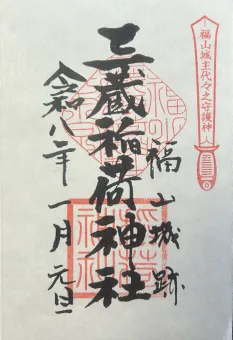 福山城主代々之守護神
福山城跡
三蔵稲荷神社
令和八年一月元旦